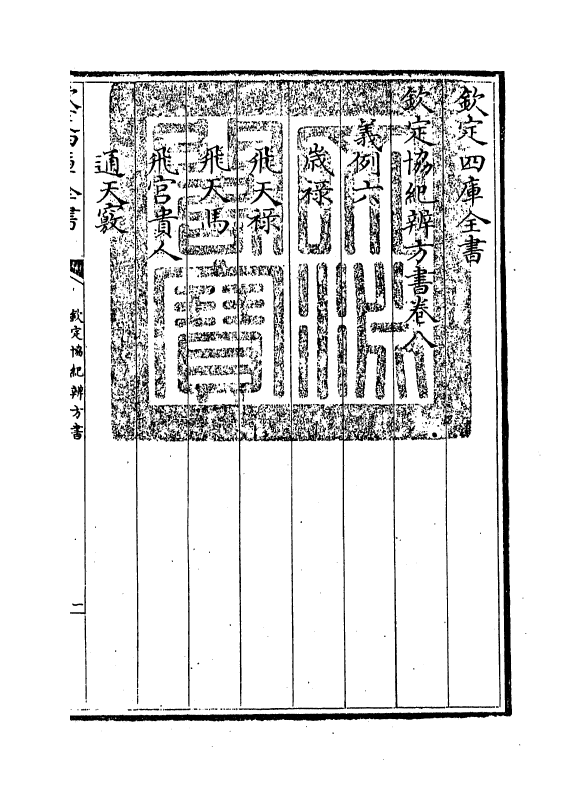 欽定四庫全書
欽定協紀辨方書卷八
義例六
歲祿
飛天祿
飛天馬
飛宮貴人
通天竅
欽定協紀辨方書
一